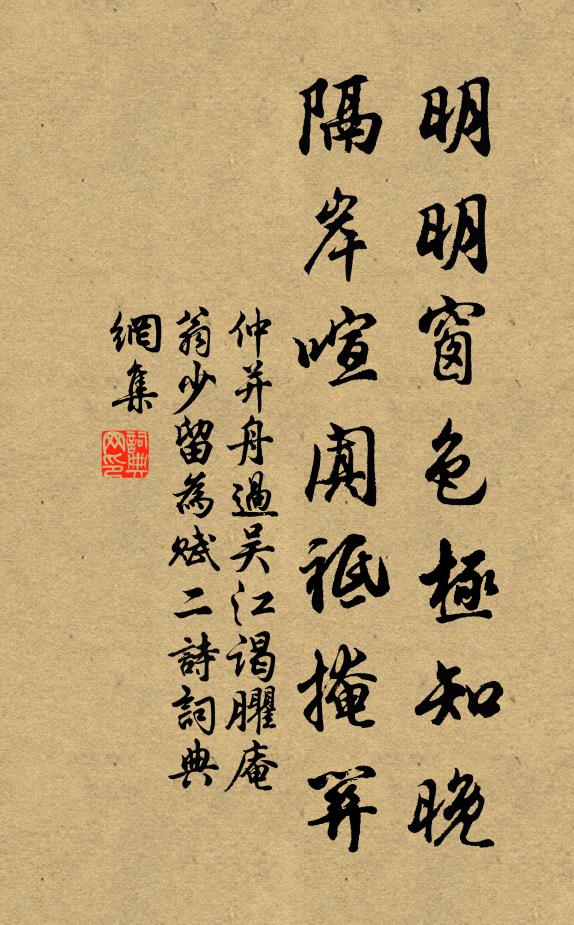 明明窗色極知晚
隔岸喧闐祗掩
仲并舟過吴江謁臞庵
翁少留為賦二詩詞典
網集
詞典網印